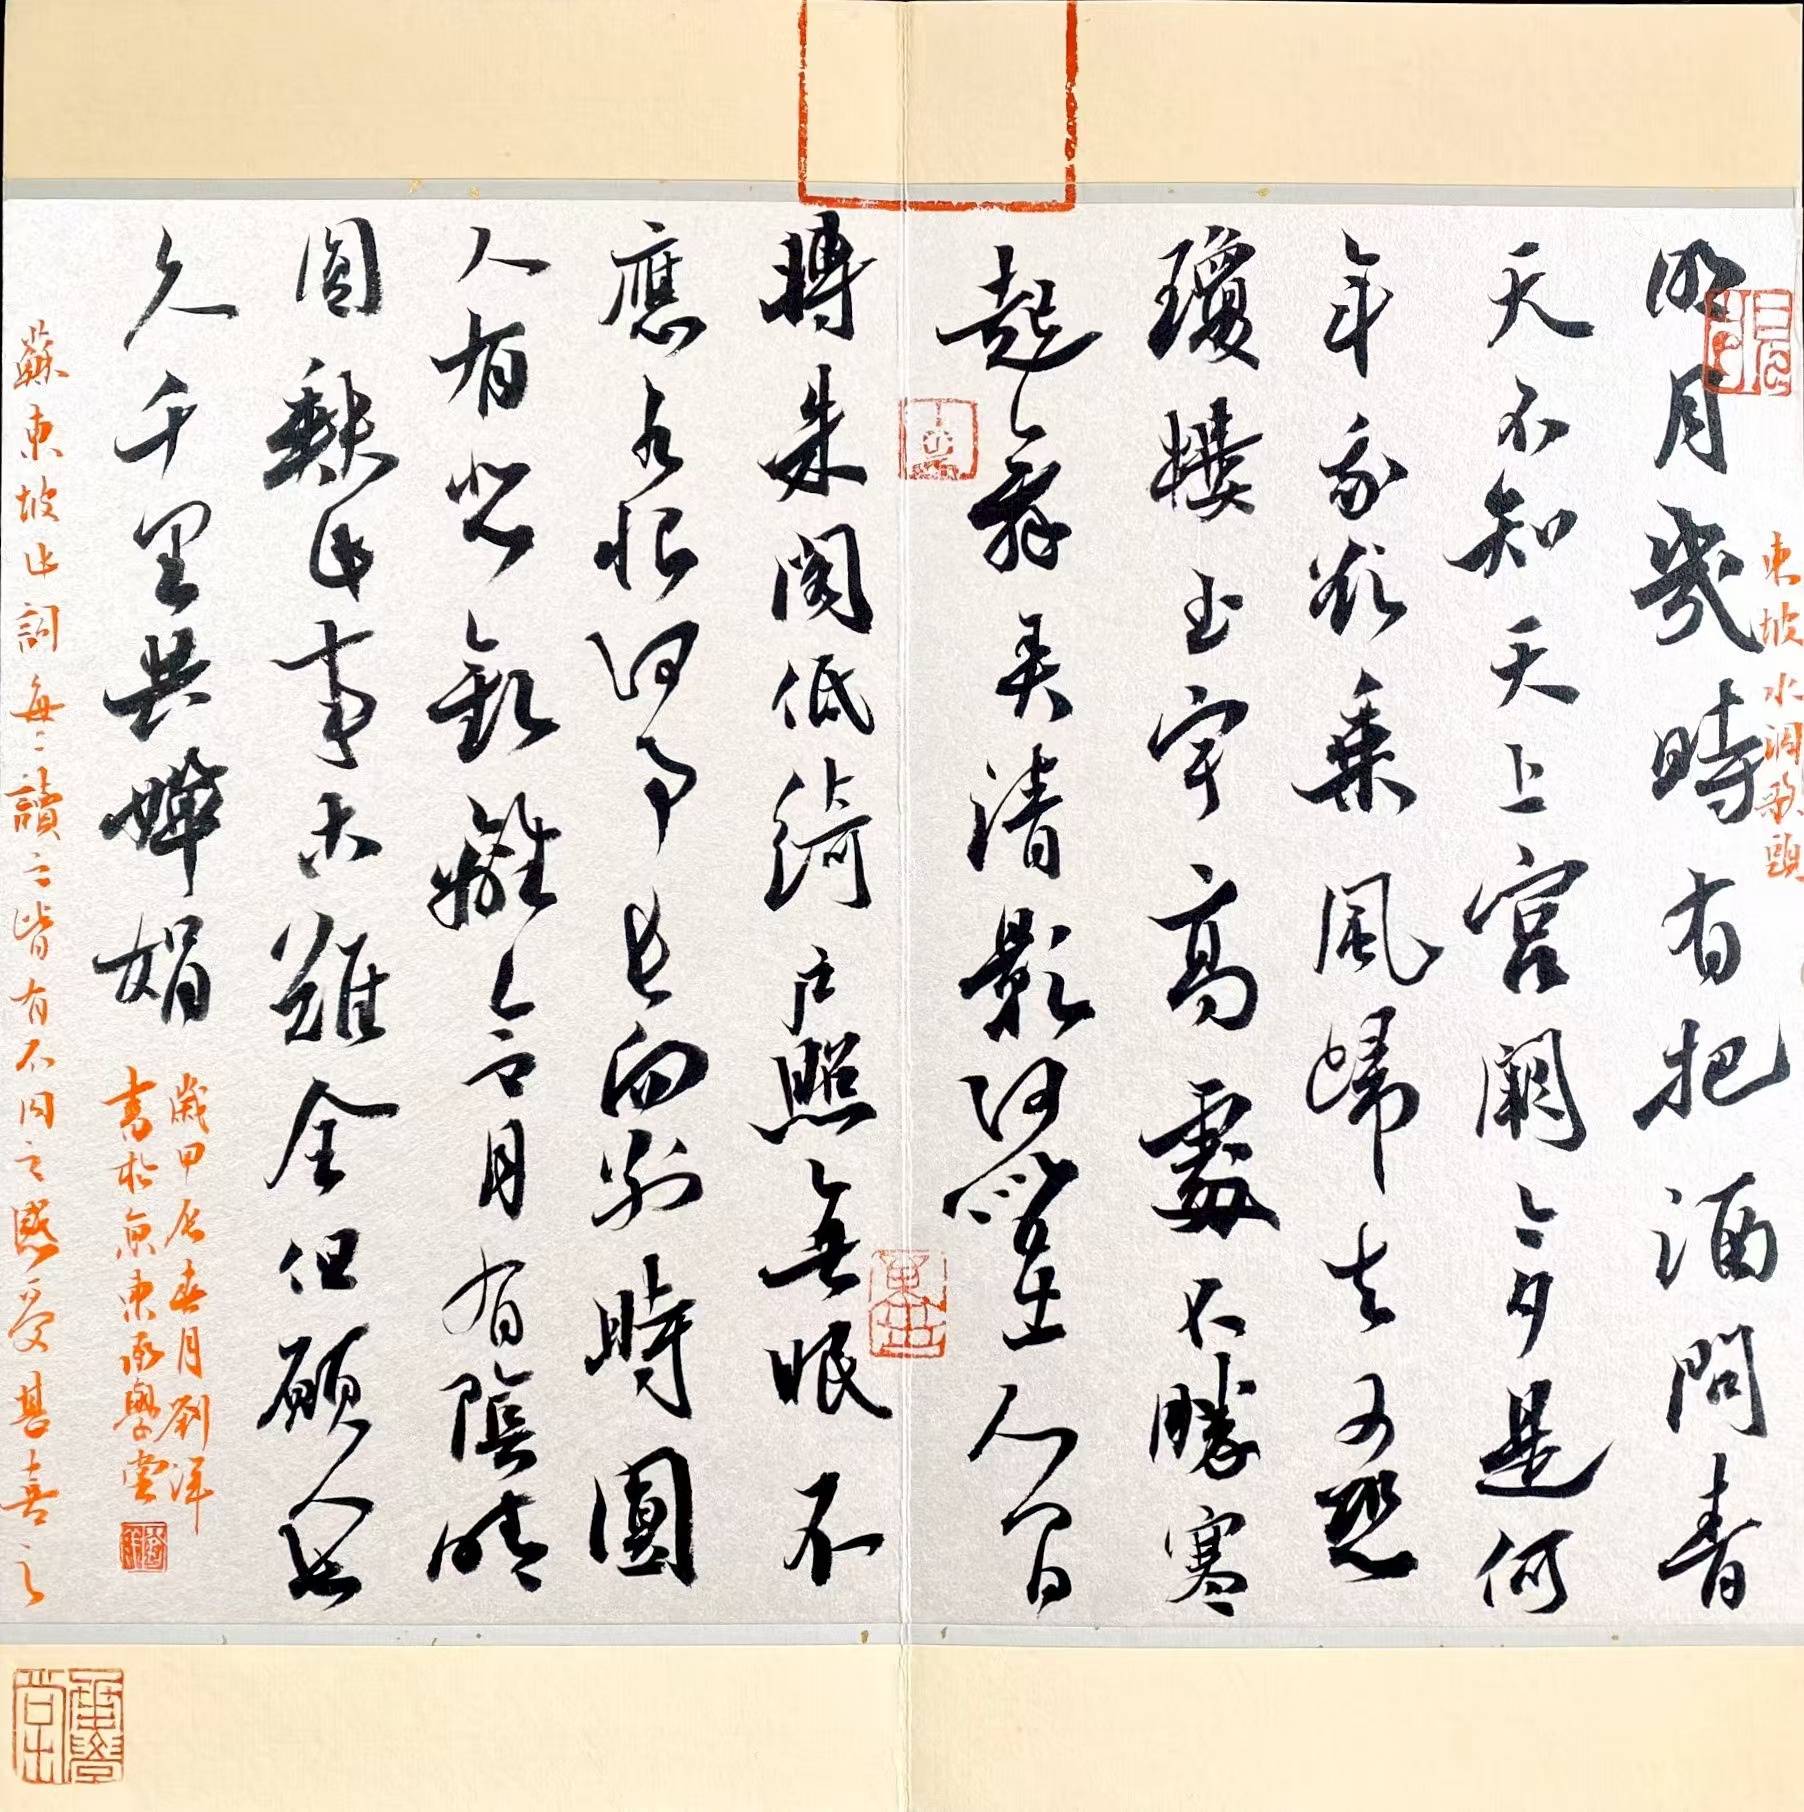 東坡水調歌頭
明月幾時有把酒問青
天不知天上宮闕今夕是何
年我欲乘風歸去又恐
瓊樓玉宇高處不勝寒
起舞弄清影何似在人間
轉朱閣低綺戶照無眠不
應有恨何事長向別時圓
人有悲歡離合月有陰晴
圓缺此事古難全但願人長
久千里共嬋娟
歲甲辰春月劉洋
書於京東承學堂
蘇東坡此詞每〻讀之皆有不同之感受甚喜之